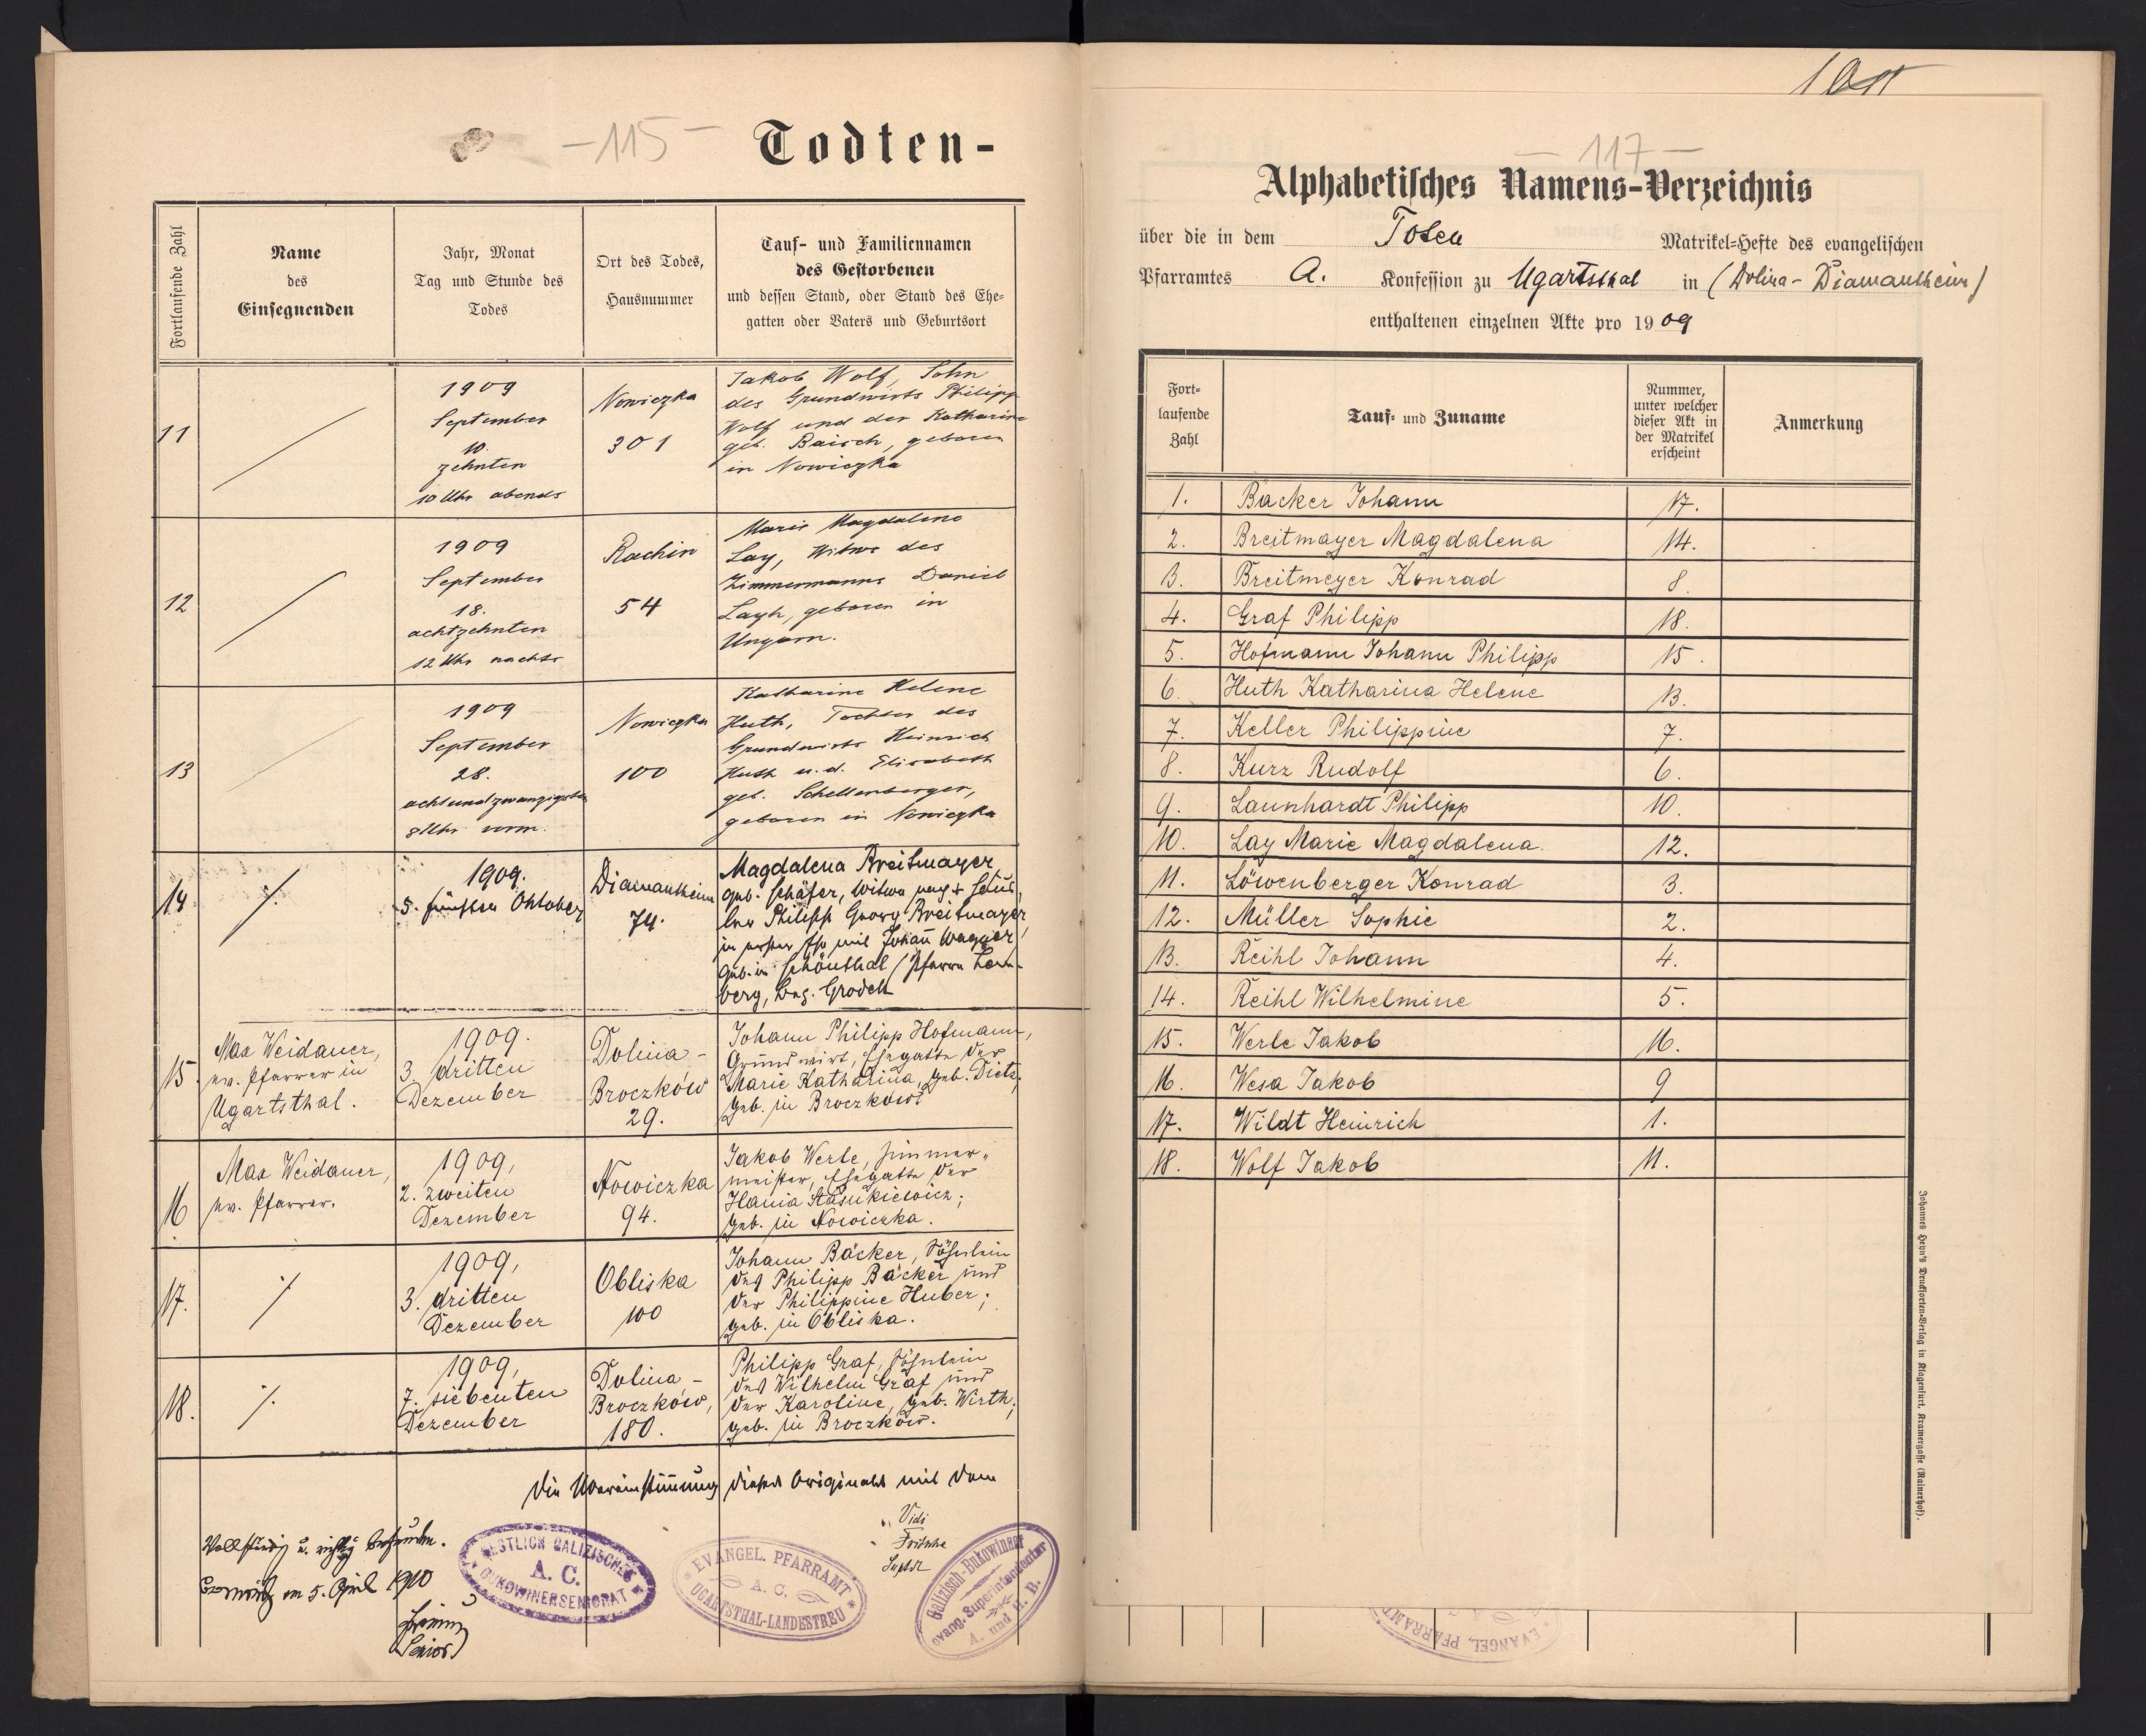 -115-
Todten-
Fortlaufende Zahl
Name
des
Einsegnenden
Jahr, Monat
Tag und Stunde des
Todes
Ort des Todes,
Hausnummer
Tauf- und Familiennamen
des Gestorbenen
und dessen Stand, oder Stand des Ehe-
gatten oder Vaters und Geburtsort
11
1909
September
10.
zehnten
10 Uhr abends
Nowiczka
301
Jakob Wolf, Sohn
des Grundwirts Philipp
Wolf und der Katharine
geb. Baisch, geboren
in Nowiczka
12
1909
September
18.
achtzehnten
12 Uhr nachts
Rachin
54
Marie Magdalene
Lay, Witwe des
Zimmermanns Daniel
Layh, geboren in
Ungarn.
13
1909
September
28.
achtundzwanzigsten
8 Uhr vorm.
Nowiczka
100
Katharine Helene
Huth, Tochter des
Grundwirts Heinrich
Huth u. d. Elisabeth
geb. Schellenberger,
geboren in Nowiczka
14
1909.
5. fünften Oktober
Diamantheim
74.
Magdalena Breitmayer,
geb. Schäfer, Witwe nach +
Philipp Georg Breitmayer,
in erster Ehe mit Johann Wagner,
geb. in Schönthal (Pfarre Lem-
berg, Bez. Grodek
15.
Max Weidauer,
ev. Pfarrer in
Ugartsthal.
1909.
3. dritten
Dezember
Dolina -
Broczków
29.
Johann Philipp Hofmann,
Grundwirt, Ehegatte der
Marie Katharina, geb. Dietz;
geb. in Broczków.
16
Max Weidauer,
ev. Pfarrer.
1909,
2. zweiten
Dezember
Nowiczka
94.
Jakob Werle, Zimmer-
meister, Ehegatte der
Hania Stasiukiewicz;
geb. in Nowiczka.
17.
1909,
3. dritten
Dezember
Obliska
100
Johann Bäcker, Söhnlein
des Philipp Bäcker und
der Philippine Huber;
geb. in Obliska.
18.
1909,
7. siebenten
Dezember
Dolina -
Broczków,
180.
Philipp Graf, Söhnlein
des Wilhelm Graf und
der Karoline, geb. Wirth;
geb. in Broczków.
Die Übereinstimmung dieses Originales mit dem
Vollständig u. richtig befunden.
am 5. April 1910
Senior
ÖSTLICH GALIZISCHES
A. C.
BUKOWINERSENIORAT
EVANGEL. PFARRAMT
A. C.
UGARTSTHAL-LANDESTREU
Vidi
Fritsche
Suptdt
Galizisch-Bukowinaer
evang. Superintendenter
A. und H. B.
-117-
Alphabetisches Namens-Verzeichnis
über die in dem Toten Matrikel-Hefte des evangelischen
Pfarramtes A. Konfession zu Ugartsthal in (Dolina - Diamantheim)
enthaltenen einzelnen Akte pro 1909
Fort-
laufende
Zahl
Tauf- und Zuname
Nummer,
unter welcher
dieser Akt in
der Matrikel
erscheint
Anmerkung
1. Bäcker Johann 17.
2. Breitmayer Magdalena 14.
3. Breitmeyer Konrad 8.
4. Graf Philipp 18.
5. Hofmann Johann Philipp 15.
6. Huth Katharina Helene 13.
7. Keller Philippine 7.
8. Kurz Rudolf 6.
9. Launhardt Philipp 10.
10. Lay Marie Magdalena. 12.
11. Löwenberger Konrad 3.
12. Müller Sophie 2.
13. Reihl Johann 4.
14. Reihl Wilhelmine 5.
15. Werle Jakob 16.
16. Wesa Jakob 9
17. Wildt Heinrich 1.
18. Wolf Jakob 11.
Johannes Heyn's Drucksorten-Verlag in Klagenfurt, Kramergasse (Rainerhof).
EVANGEL. PFARRAMT